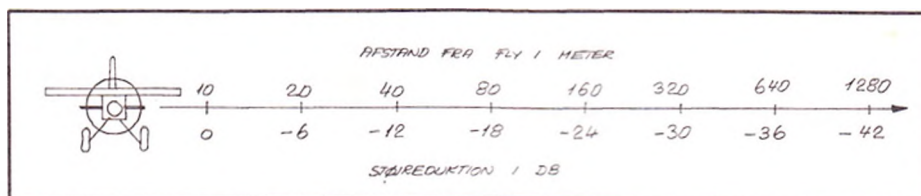 AFSTAND FRA FLY I METER
10 20 40 80 160 320 640 1280
0 -6 -12 -18 -24 -30 -36 -42
STØJREDUKTION I DB